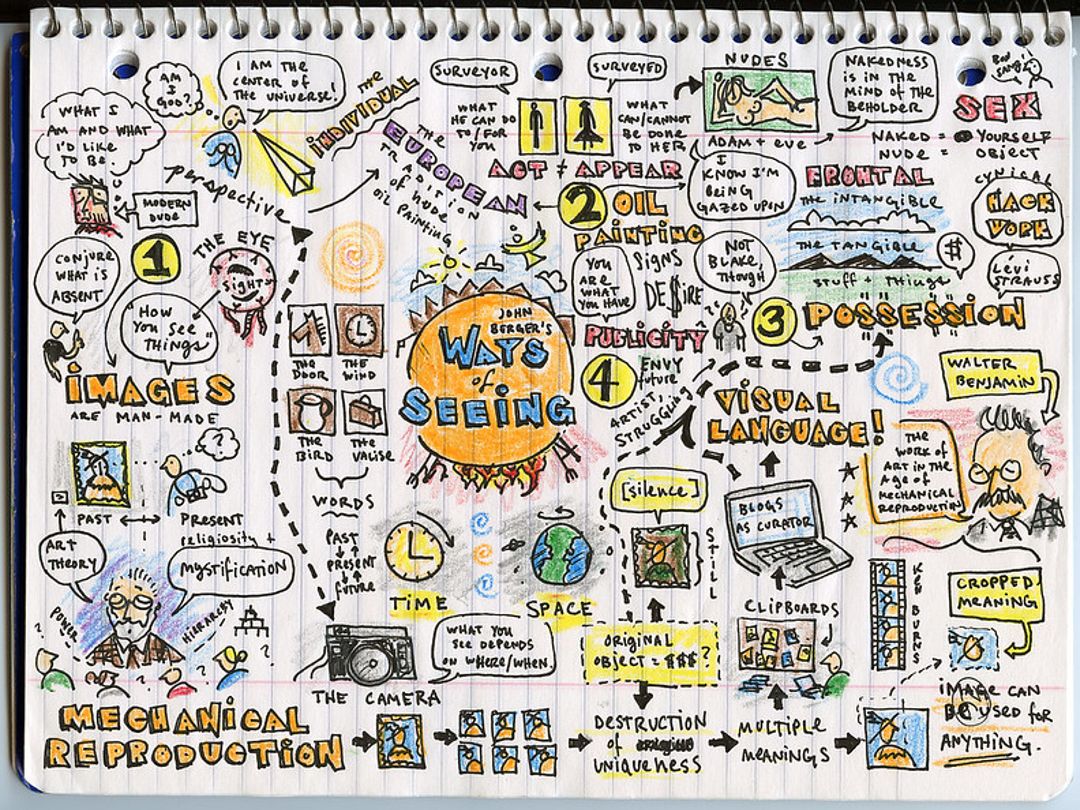 AM
I
GOD?
I AM THE
CENTER OF
THE UNIVERSE!
WHAT I
AM AND WHAT
I'D LIKE
TO BE.
THE
INDIVIDUAL
perspective
MODERN
DUDE
SURVEYOR
SURVEYED
WHAT
HE CAN DO
TO/FOR
YOU
WHAT
CAN/CANNOT
BE DONE
TO HER
ACT ≠ APPEAR
NUDES
ADAM + eve
NAKEDNESS
IS IN THE
MIND OF THE
BEHOLDER
SEX
NAKED = YOURSELF
NUDE = OBJECT
I
KNOW I'M
BEING
GAZED UPON
THE
EUROPEAN
TRADITION
of nude
OIL PAINTING!
2 OIL
PAINTING
YOU
ARE
WHAT
YOU HAVE
SIGNS
DE$IRE
NOT
BLAKE,
THOUGH
FRONTAL
THE INTANGIBLE
THE TANGIBLE
STUFF + THINGS
$
CYNICAL
HACK
WORK
LÉVI
STRAUSS
3 POSSESSION
1
CONJURE
WHAT IS
ABSENT
THE EYE
SIGHT
"HOW
YOU SEE
THINGS"
IMAGES
ARE MAN-MADE
THE
DOOR
THE
WIND
THE
BIRD
THE
VALISE
WORDS
PAST
PRESENT
FUTURE
JOHN
BERGER'S
WAYS
of
SEEING
PUBLICITY
4
ENVY
future
ARTIST,
STRUGGLING
VISUAL
LANGUAGE!
WALTER
BENJAMIN
THE
WORK OF
ART IN THE
AGE of
MECHANICAL
REPRODUCTION
?
PAST
PRESENT
religiosity +
ART
THEORY
MYSTIFICATION
POWER
HIERARCHY
TIME
SPACE
[silence]
STILL
BLOGS
AS CURATOR
CLIPBOARDS
KEN BURNS
CROPPED
MEANING
THE CAMERA
WHAT YOU
SEE DEPENDS
ON WHERE/WHEN.
ORIGINAL
OBJECT = $$$?
MECHANICAL
REPRODUCTION
DESTRUCTION
of
UNIQUENESS
MULTIPLE
MEANINGS
IMAGE CAN
BE USED for
ANYTHING.